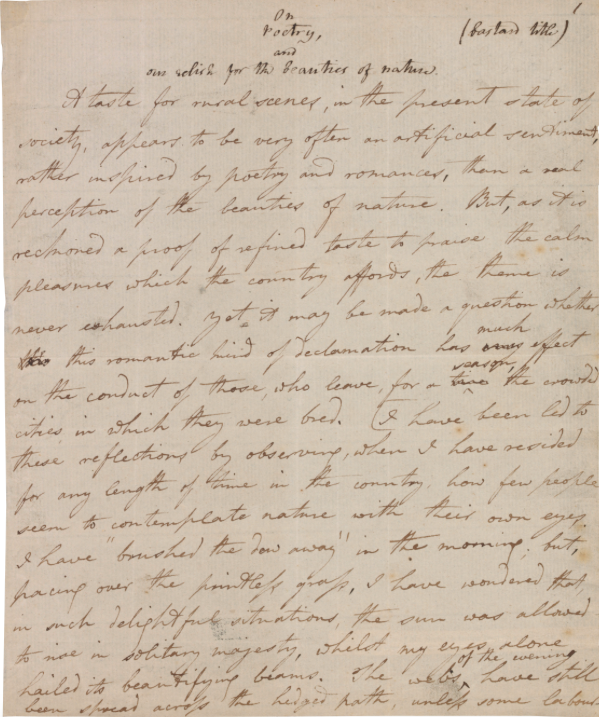 1
On
Poetry, (bastard title)
and
our relish for the beauties of nature.
A taste for rural scenes, in the present state of
society, appears to be very often an artificial sentiment,
rather inspired by poetry and romances, than a real
perception of the beauties of nature. But, as it is
reckoned a proof of refined taste to praise the calm
pleasures which the country affords, the theme is
never exhausted. Yet, it may be made a question whether
this romantic kind of declamation has much effect
on the conduct of those, who leave, for a season, the crowded
cities in which they were bred. (I have been led to
these reflections by observing, when I have resided
for any length of time in the country, how few people
seem to contemplate nature with their own eyes.
I have "brushed the dew away" in the morning; but,
pacing over the printless grass, I have wondered that,
in such delightful situations, the sun was allowed
to rise in solitary majesty, whilst my eyes alone
hailed its beautifying beams. The webs of the evening have still
been spread across the hedged path, unless some labour